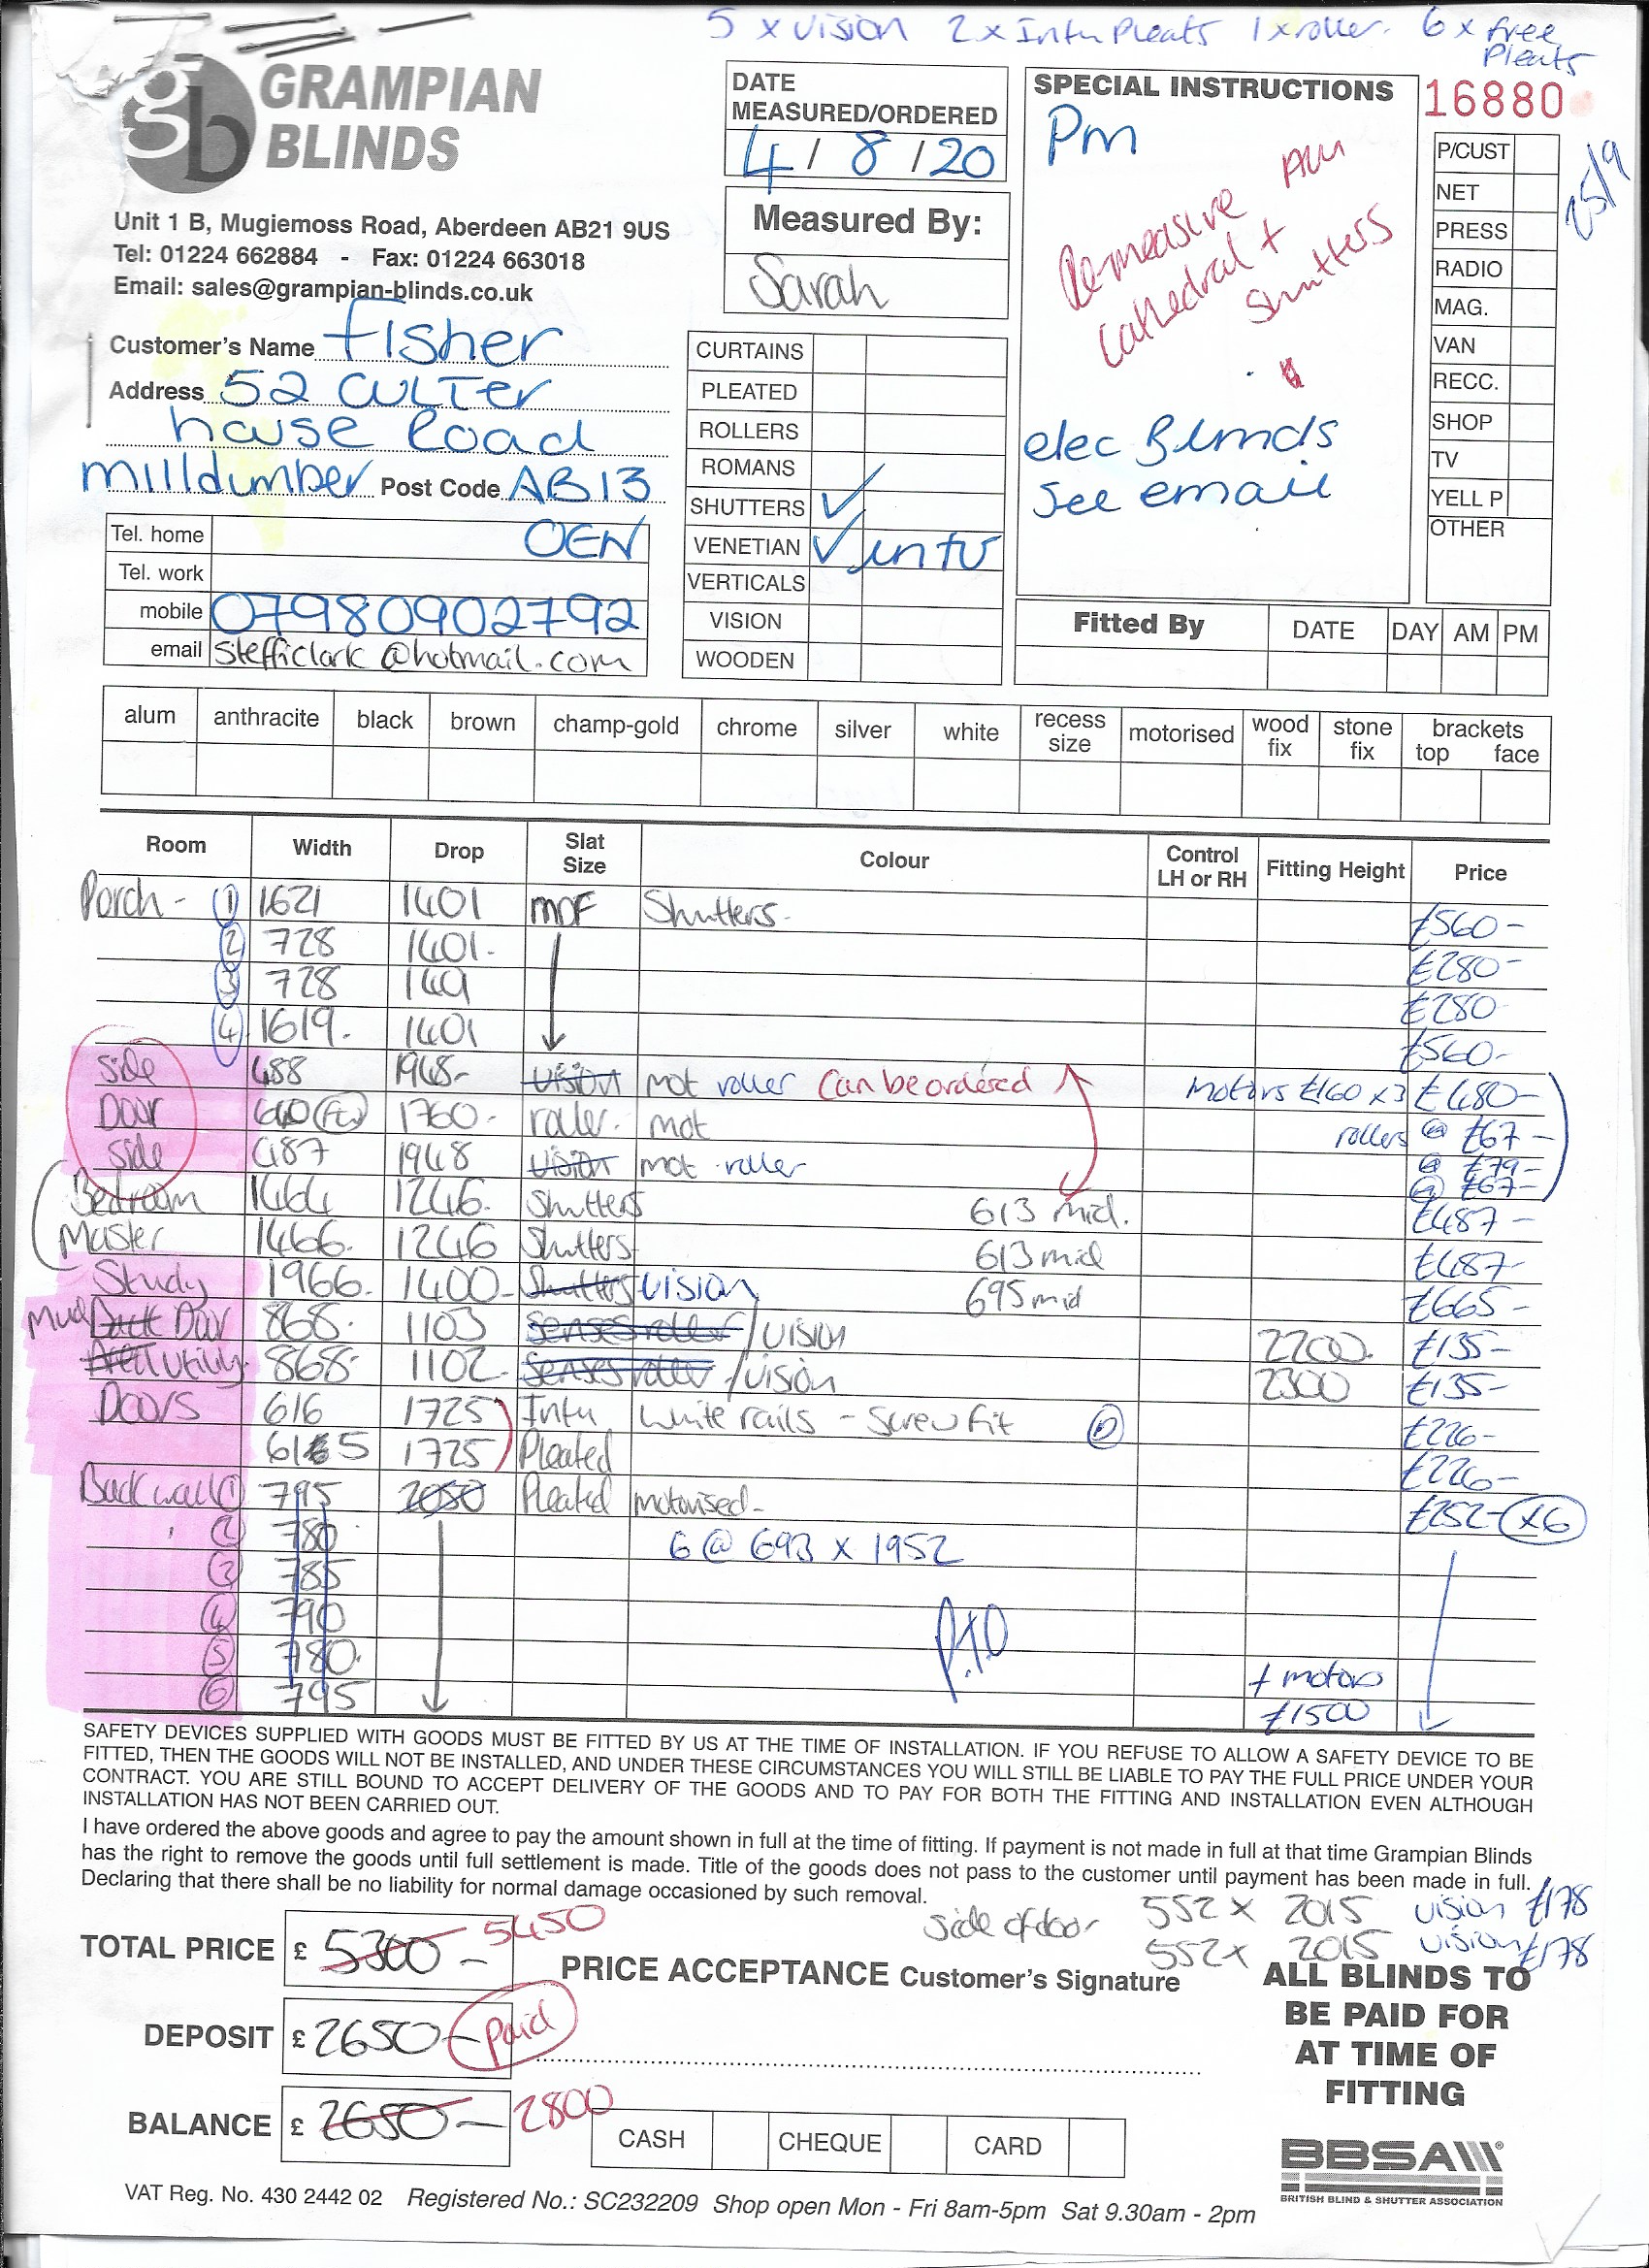 5 x vision 2 x Intu Pleats 1 x roller. 6 x free
Pleats
gb GRAMPIAN
BLINDS
Unit 1 B, Mugiemoss Road, Aberdeen AB21 9US
Tel: 01224 662884 - Fax: 01224 663018
Email: sales@grampian-blinds.co.uk
Customer's Name Fisher
Address 52 Culter
house Road
milldumber Post Code AB13
Tel. home OEN
Tel. work
mobile 07980902792
email stefficlark@hotmail.com
DATE
MEASURED/ORDERED
4 / 8 / 20
Measured By:
Sarah
CURTAINS
PLEATED
ROLLERS
ROMANS
SHUTTERS ✓
VENETIAN ✓ intu
VERTICALS
VISION
WOODEN
SPECIAL INSTRUCTIONS
Pm
Re-measure All
Cathedral +
Shutters
elec Blinds
See email
16880
25/9
P/CUST
NET
PRESS
RADIO
MAG.
VAN
RECC.
SHOP
TV
YELL P
OTHER
Fitted By DATE DAY AM PM
alum anthracite black brown champ-gold chrome silver white recess size motorised wood fix stone fix brackets top face
Room Width Drop Slat Size Colour Control LH or RH Fitting Height Price
Porch - 1 1621 1401 MDF Shutters- £560-
2 728 1401- £280-
3 728 1401 £280-
4 1619. 1401 £560-
Side 488 1948- vision mot roller Can be ordered Motors £160 x 3 £480-
Door 1760- roller. mot rollers @ £67-
Side 487 1948 vision mot roller @ £79-
@ £67-
Bedroom 1464 1246. Shutters 613 mid. £487-
Master 1466. 1246 Shutters 613 mid £487-
Study 1966. 1400- Shutters vision 695 mid £665-
Mud Door 868. 1103 Senses roller / vision 2200. £135-
Utility 868. 1102. Senses roller / vision 2300 £135-
Doors 616 1725 Intu White rails - Screw fit £226-
615 1725 Pleated £226-
Back wall 1 795 2050 Pleated motorised- £252- x6
2 780 6 @ 693 x 1952
3 785
4 790
5 780. P.T.O
6 795 + motors
£1500
SAFETY DEVICES SUPPLIED WITH GOODS MUST BE FITTED BY US AT THE TIME OF INSTALLATION. IF YOU REFUSE TO ALLOW A SAFETY DEVICE TO BE
FITTED, THEN THE GOODS WILL NOT BE INSTALLED, AND UNDER THESE CIRCUMSTANCES YOU WILL STILL BE LIABLE TO PAY THE FULL PRICE UNDER YOUR
CONTRACT. YOU ARE STILL BOUND TO ACCEPT DELIVERY OF THE GOODS AND TO PAY FOR BOTH THE FITTING AND INSTALLATION EVEN ALTHOUGH
INSTALLATION HAS NOT BEEN CARRIED OUT.
I have ordered the above goods and agree to pay the amount shown in full at the time of fitting. If payment is not made in full at that time Grampian Blinds
has the right to remove the goods until full settlement is made. Title of the goods does not pass to the customer until payment has been made in full.
Declaring that there shall be no liability for normal damage occasioned by such removal.
side of door 552 x 2015 vision £178
552 x 2015 vision £178
TOTAL PRICE £ 5300- 5450
PRICE ACCEPTANCE Customer's Signature
DEPOSIT £ 2650- paid
BALANCE £ 2650- 2800
CASH CHEQUE CARD
ALL BLINDS TO
BE PAID FOR
AT TIME OF
FITTING
BBSA
BRITISH BLIND & SHUTTER ASSOCIATION
VAT Reg. No. 430 2442 02 Registered No.: SC232209 Shop open Mon - Fri 8am-5pm Sat 9.30am - 2pm